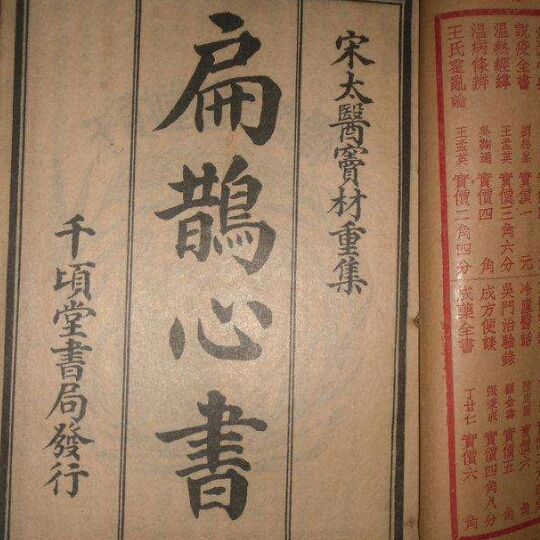 宋太醫竇材重集
扁鵲心書
千頃堂書局發行
說疫全書 劉松峯 實價一元
溫熱經緯 王孟英 實價三角六分
溫病條辨 吳鞠通 實價四角
王氏霍亂論 王孟英 實價二角四分
冷廬醫話 實價六角
吳門治驗錄 顧金壽 實價五角
成方便讀 張秉成 實價四角八分
成藥全書 丁甘仁 實價六角